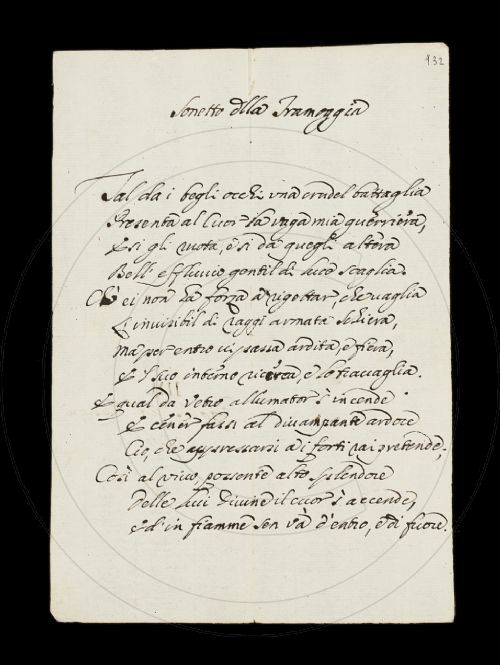 132
Sonetto della Tramoggia
Tal da i begli occhi una crudel battaglia
Presenta al Cuor la vaga mia guerriera,
E sì gli ruota, e sì da quegli altera
Bell' effluvio gentil di luce scaglia.
Ch' ei non ha forza a rigettar, che vaglia
L' invisibil di raggi armata schiera,
Ma per entro vi passa ardita, e fiera,
E 'l suo interno ricerca, e lo travaglia.
E qual da vetro allumator s' incende
E cener fassi al divampante ardore
Ciò, che appressarsi a i forti rai pretende,
Così al vivo, possente alto splendore
Delle luci divine il cuor s' accende,
E d' in fiamme sen và d' entro, e di fuore.